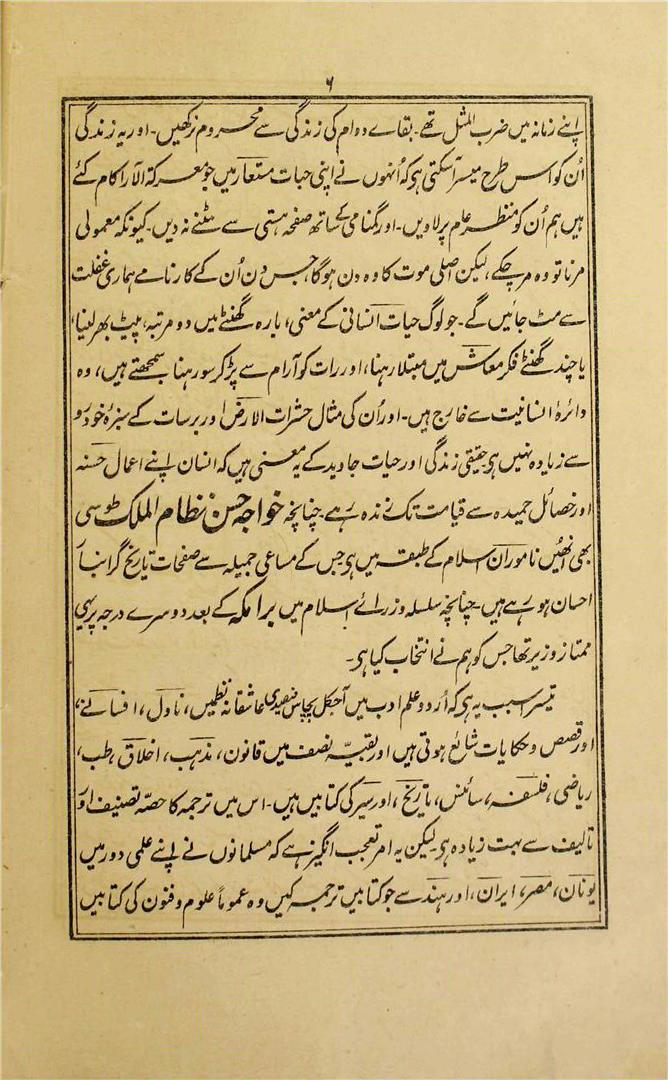 ۶
اپنے زمانہ میں ضرب المثل تھے۔ بقاے دوام کی زندگی سے محروم نرکھیں۔ اور یہ زندگی
اُن کو اس طرح میسر آسکتی ہو کہ اُنہوں نے اپنی حیات مستعار میں جو معرکۃ الآرا کام کئے
ہیں ہم اُن کو منظر عام پر لاویں۔ اور گمنامی کے ساتھ صفحہ ہستی سے مٹنے نہ دیں۔ کیونکہ معمولی
مرنا تو وہ مر چکے، لیکن اصلی موت کا وہ دن ہو گا، جس دن اُن کے کارنامے ہماری غفلت
سے مٹ جائیں گے۔ جو لوگ حیات انسانی کے معنی، بارہ گھنٹے میں دو مرتبہ، پیٹ بھر لینا،
یا چند گھنٹے فکر معاش میں مبتلا رہنا، اور رات کو آرام سے پڑ کر سو رہنا سمجھتے ہیں، وہ
دائرۂ انسانیت سے خارج ہیں۔ اور اُن کی مثال حشرات الارض اور برسات کے سبزۂ خود رو
سے زیادہ نہیں ہو حقیقی زندگی اور حیات جاوید کے یہ معنی ہیں کہ انسان اپنے اعمال حسنہ
اور خصائل حمیدہ سے قیامت تک زندہ رہے۔ چنانچہ خواجہ حسن نظام الملک طوسی
بھی اُنھیں ناموران اسلام کے طبقہ میں ہو جس کے مساعی جمیلہ سے صفحات تاریخ گرانبار
احسان ہو رہے ہیں۔ چنانچہ سلسلہ وزرائے اسلام میں برامکہ کے بعد دوسرے درجہ پر یہی
ممتاز وزیر تھا جس کو ہم نے انتخاب کیا ہو۔
تیسرا سبب یہ ہو کہ اُردو علم ادب میں آجکل پچاس فیصدی عاشقانہ نظمیں، ناول، افسانے،
اور قصص و حکایات شائع ہوتی ہیں اور بقیہ نصف میں قانون، مذہب، اخلاق، طب،
ریاضی، فلسفہ، سائنس، تاریخ، اور سیر کی کتابیں ہیں۔ اس میں ترجمہ کا حصّہ تصنیف اور
تالیف سے بہت زیادہ ہو لیکن یہ امر تعجب انگیز ہے کہ مسلمانوں نے اپنے علمی دور میں
یونان، مصر، ایران، اور ہند سے جو کتابیں ترجمہ کیں وہ عموماً علوم و فنون کی کتابیں